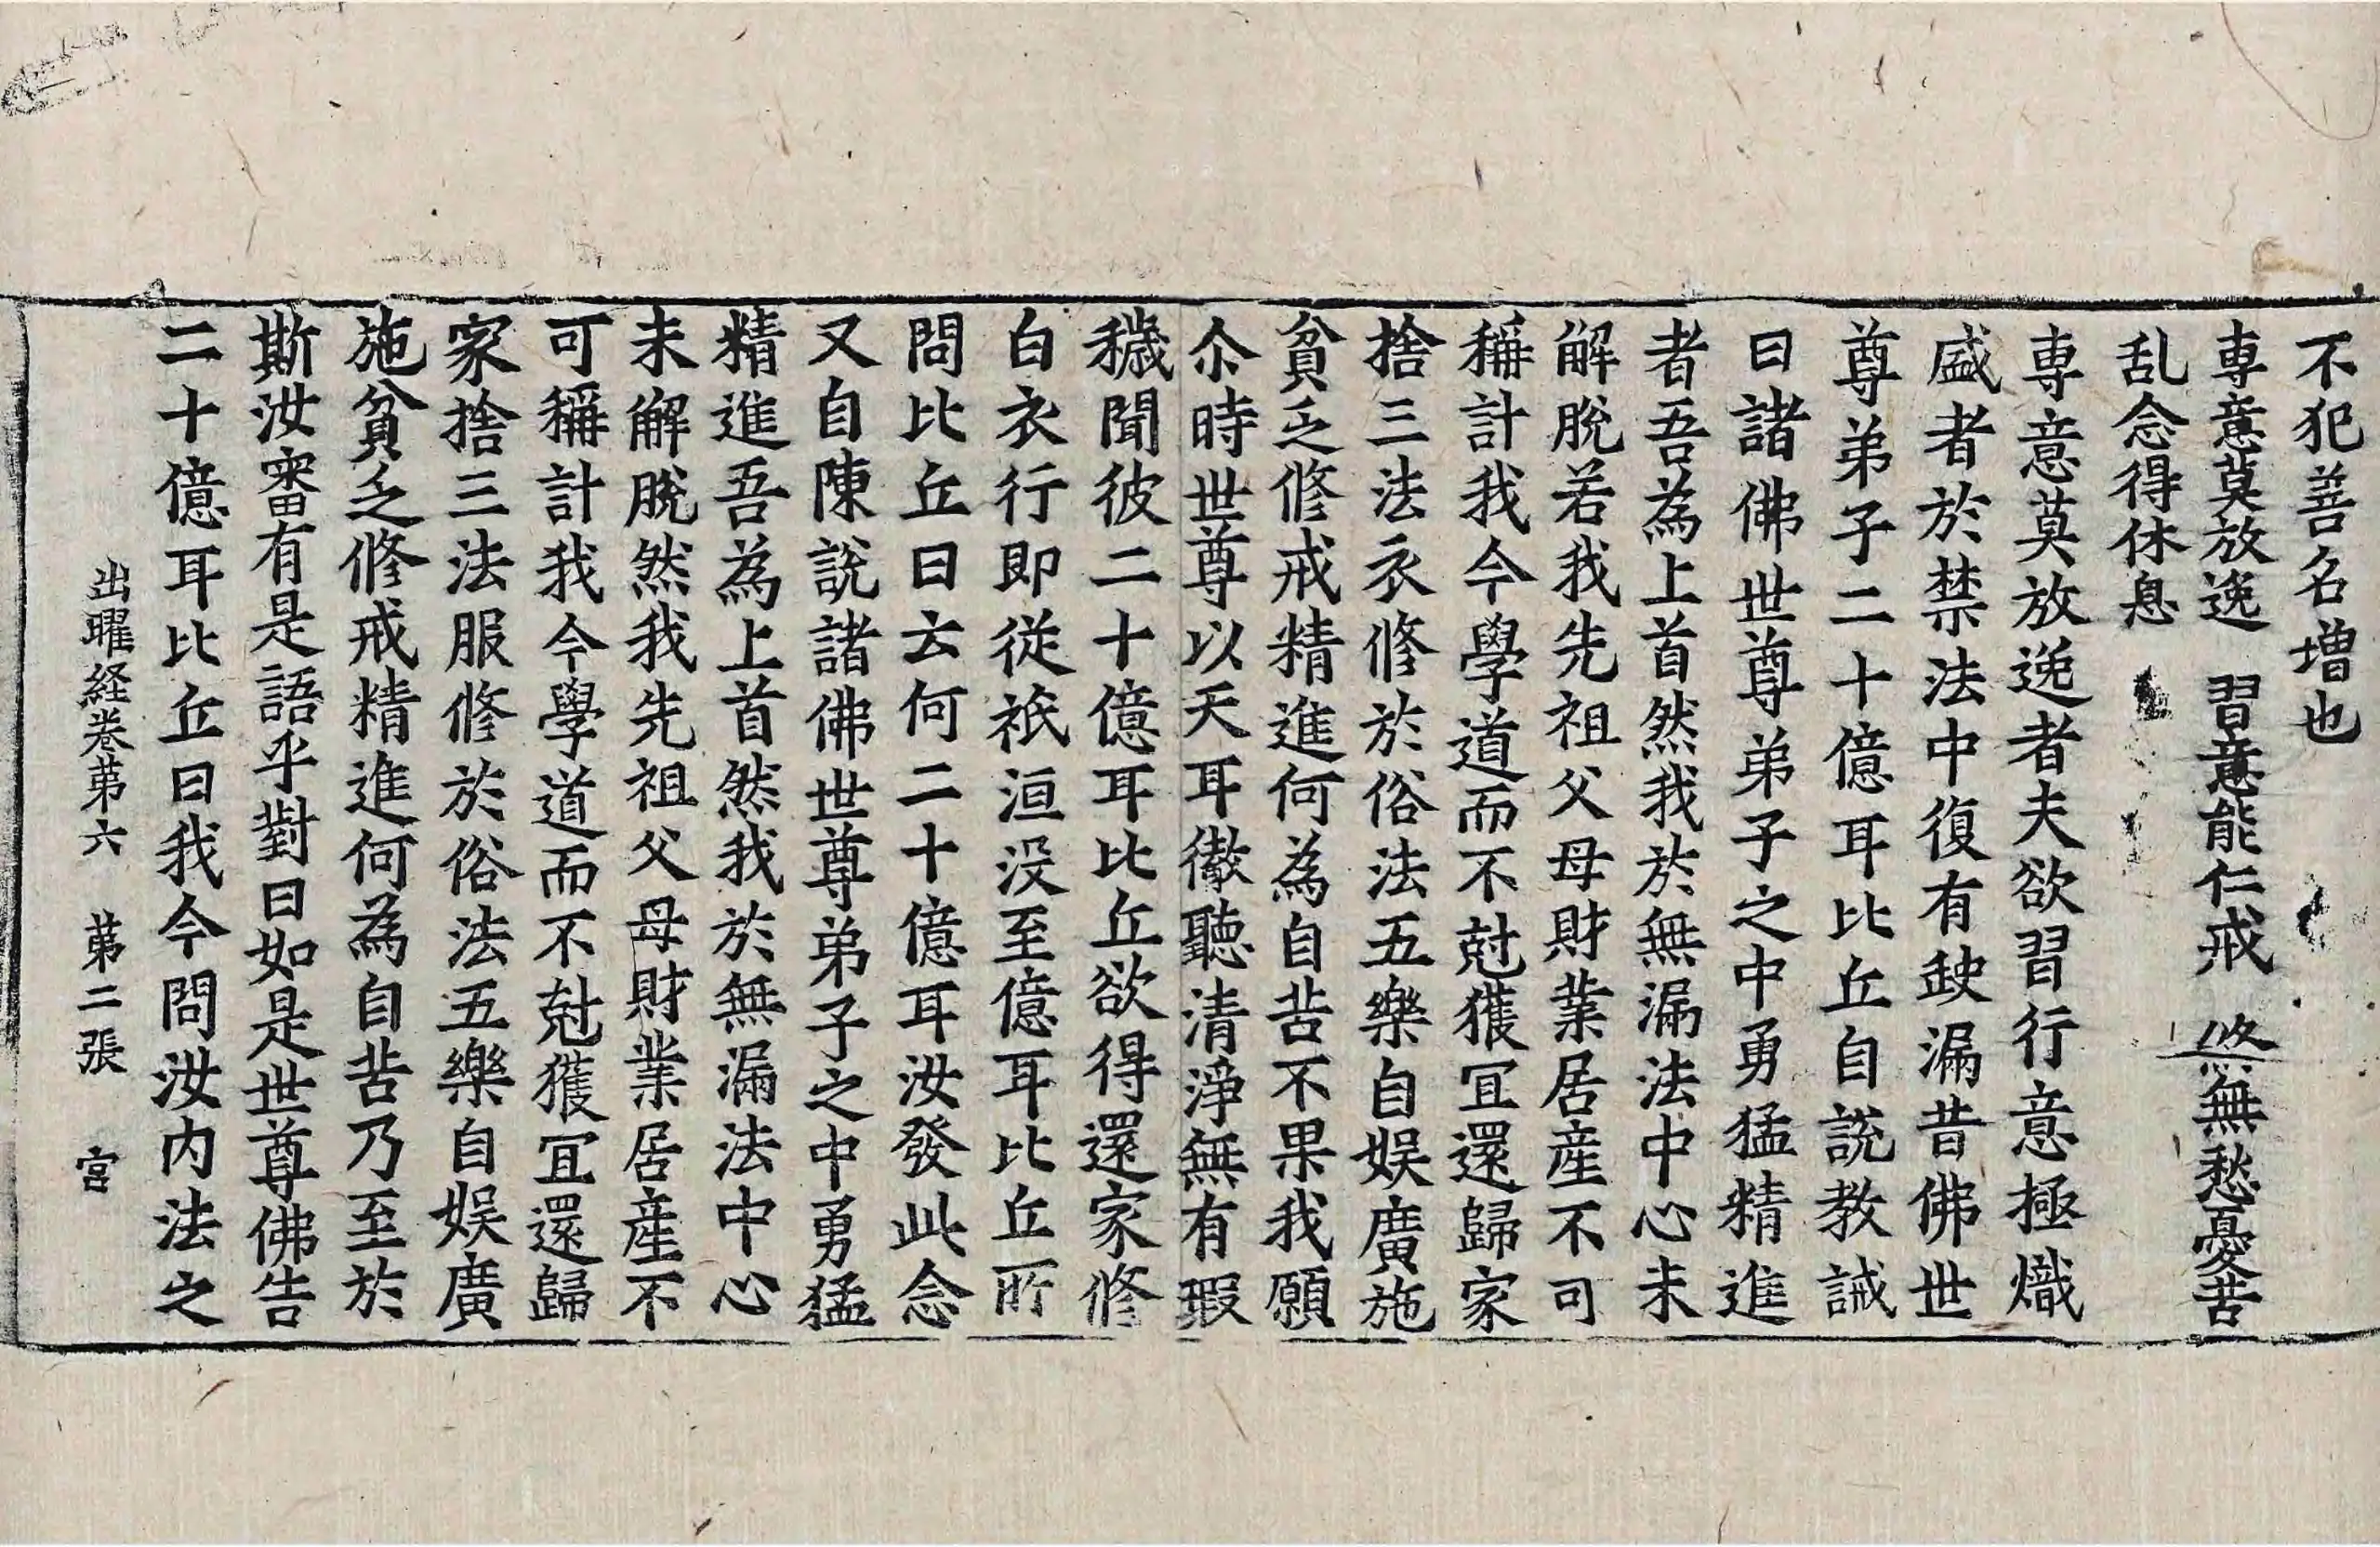 不犯善名增也
専意莫放逸　習意能仁戒　㷀無愁憂苦
乱念得休息
専意莫放逸者夫欲習行意極熾
盛者於禁法中復有𡙇漏昔佛世
尊弟子二十億耳比丘自說教誡
曰諸佛世尊弟子之中勇猛精進
者吾為上首然我於無漏法中心未
解脫若我先祖父母財業居産不可
稱計我今學道而不尅獲冝還歸家
捨三法衣修於俗法五樂自娱廣施
貧乏修戒精進何為自苦不果我願
尒時世尊以天耳徹聽清淨無有瑕
穢聞彼二十億耳比丘欲得還家修
白衣行即從祇洹没至億耳比丘所
問比丘曰云何二十億耳汝發此念
又自陳說諸佛世尊弟子之中勇猛
精進吾為上首然我於無漏法中心
未解脫然我先祖父母財業居産不
可稱計我今學道而不尅獲冝還歸
家捨三法服修於俗法五樂自娱廣
施貧乏修戒精進何為自苦乃至於
斯汝審有是語乎對曰如是世尊佛告
二十億耳比丘曰我今問汝内法之
出曜経卷第六　第二張　宮